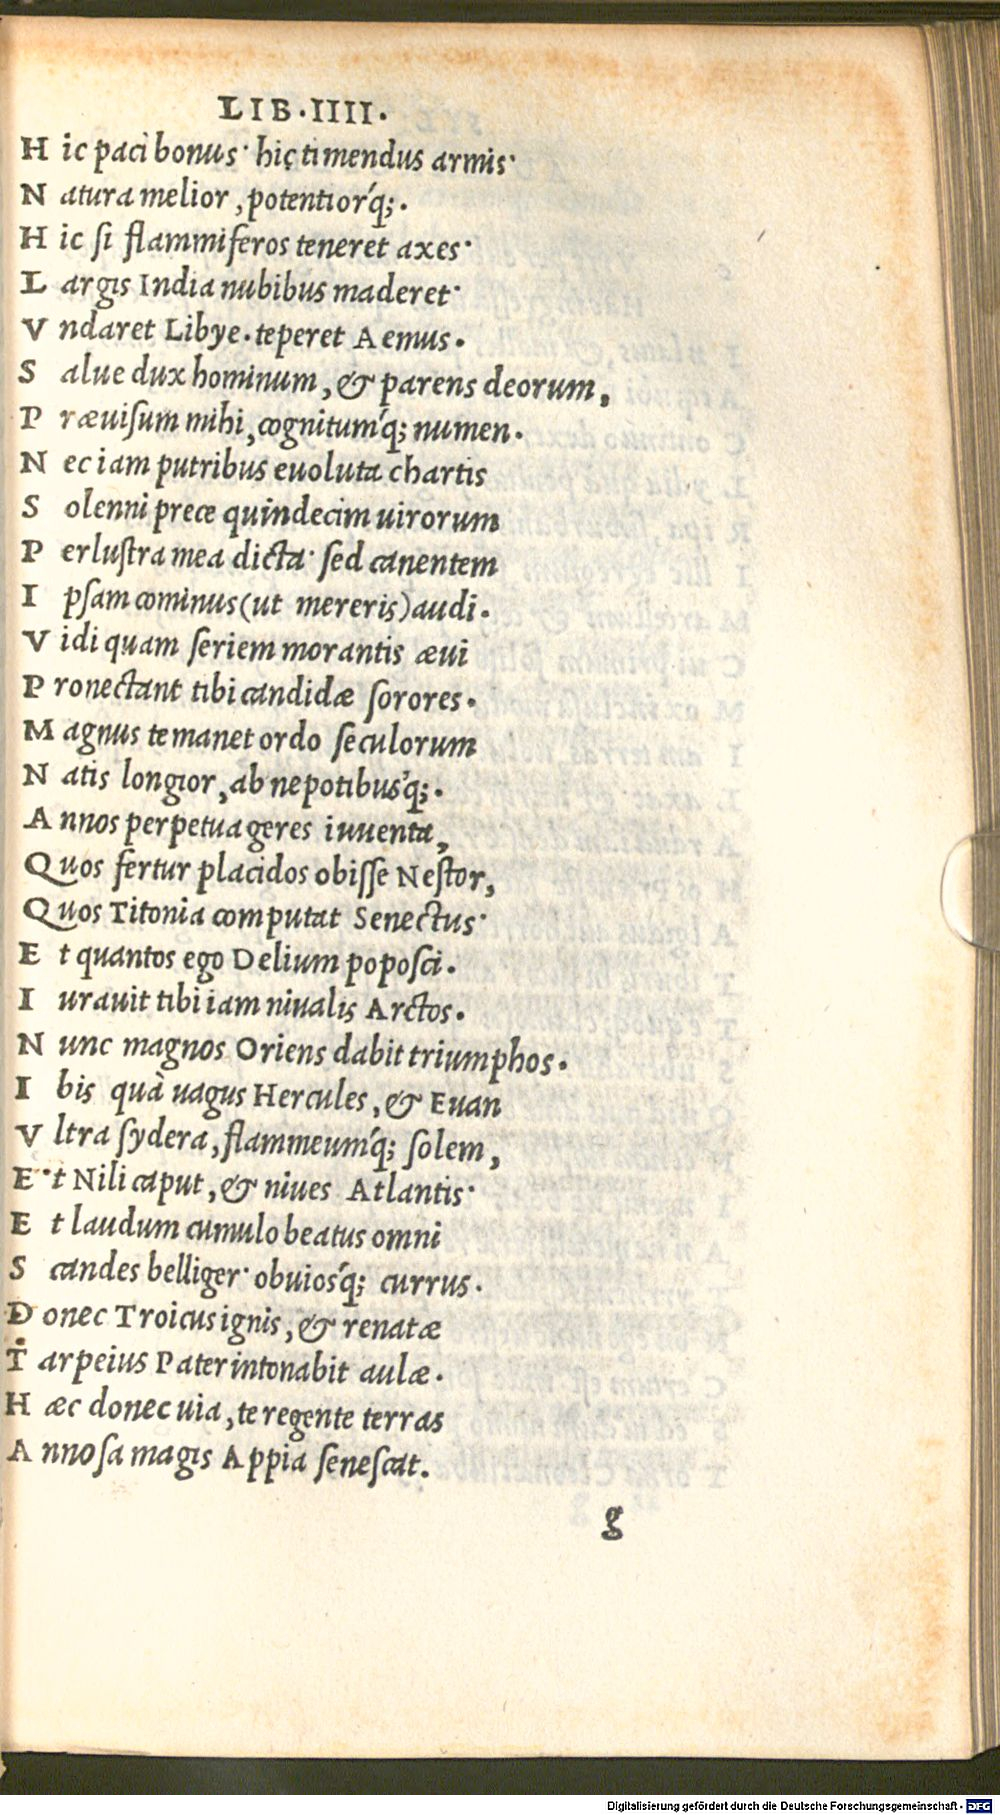 LIB.IIII.
H ic paci bonus· hic timendus armis·
N atura melior, potentiorq́;.
H ic si flammiferos teneret axes·
L argis India nubibus maderet·
V ndaret Libye. teperet Aemus.
S alue dux hominum, & parens deorum,
P ræuisum mihi, cognitumq́; numen.
N ec iam putribus euoluta chartis
S olenni prece quindecim uirorum
P erlustra mea dicta· sed canentem
I psam cominus (ut mereris) audi.
V idi quam seriem morantis æui
P ronectant tibi candidæ sorores.
M agnus te manet ordo seculorum
N atis longior, abnepotibusq́;.
A nnos perpetua geres iuuenta,
Q uos fertur placidos obisse Nestor,
Q uos Titonia computat Senectus·
E t quantos ego Delium poposci.
I urauit tibi iam niualis Arctos.
N unc magnos Oriens dabit triumphos.
I bis quà uagus Hercules, & Euan
V ltra sydera, flammeumq́; solem,
E t Nili caput, & niues Atlantis·
E t laudum cumulo beatus omni
S candes belliger· obuiosq́; currus.
D onec Troicus ignis, & renatæ
T arpeius Pater intonabit aulæ.
H æc donec uia, te regente terras
A nnosa magis Appia senescat.
g
Digitalisierung gefördert durch die Deutsche Forschungsgemeinschaft - DFG